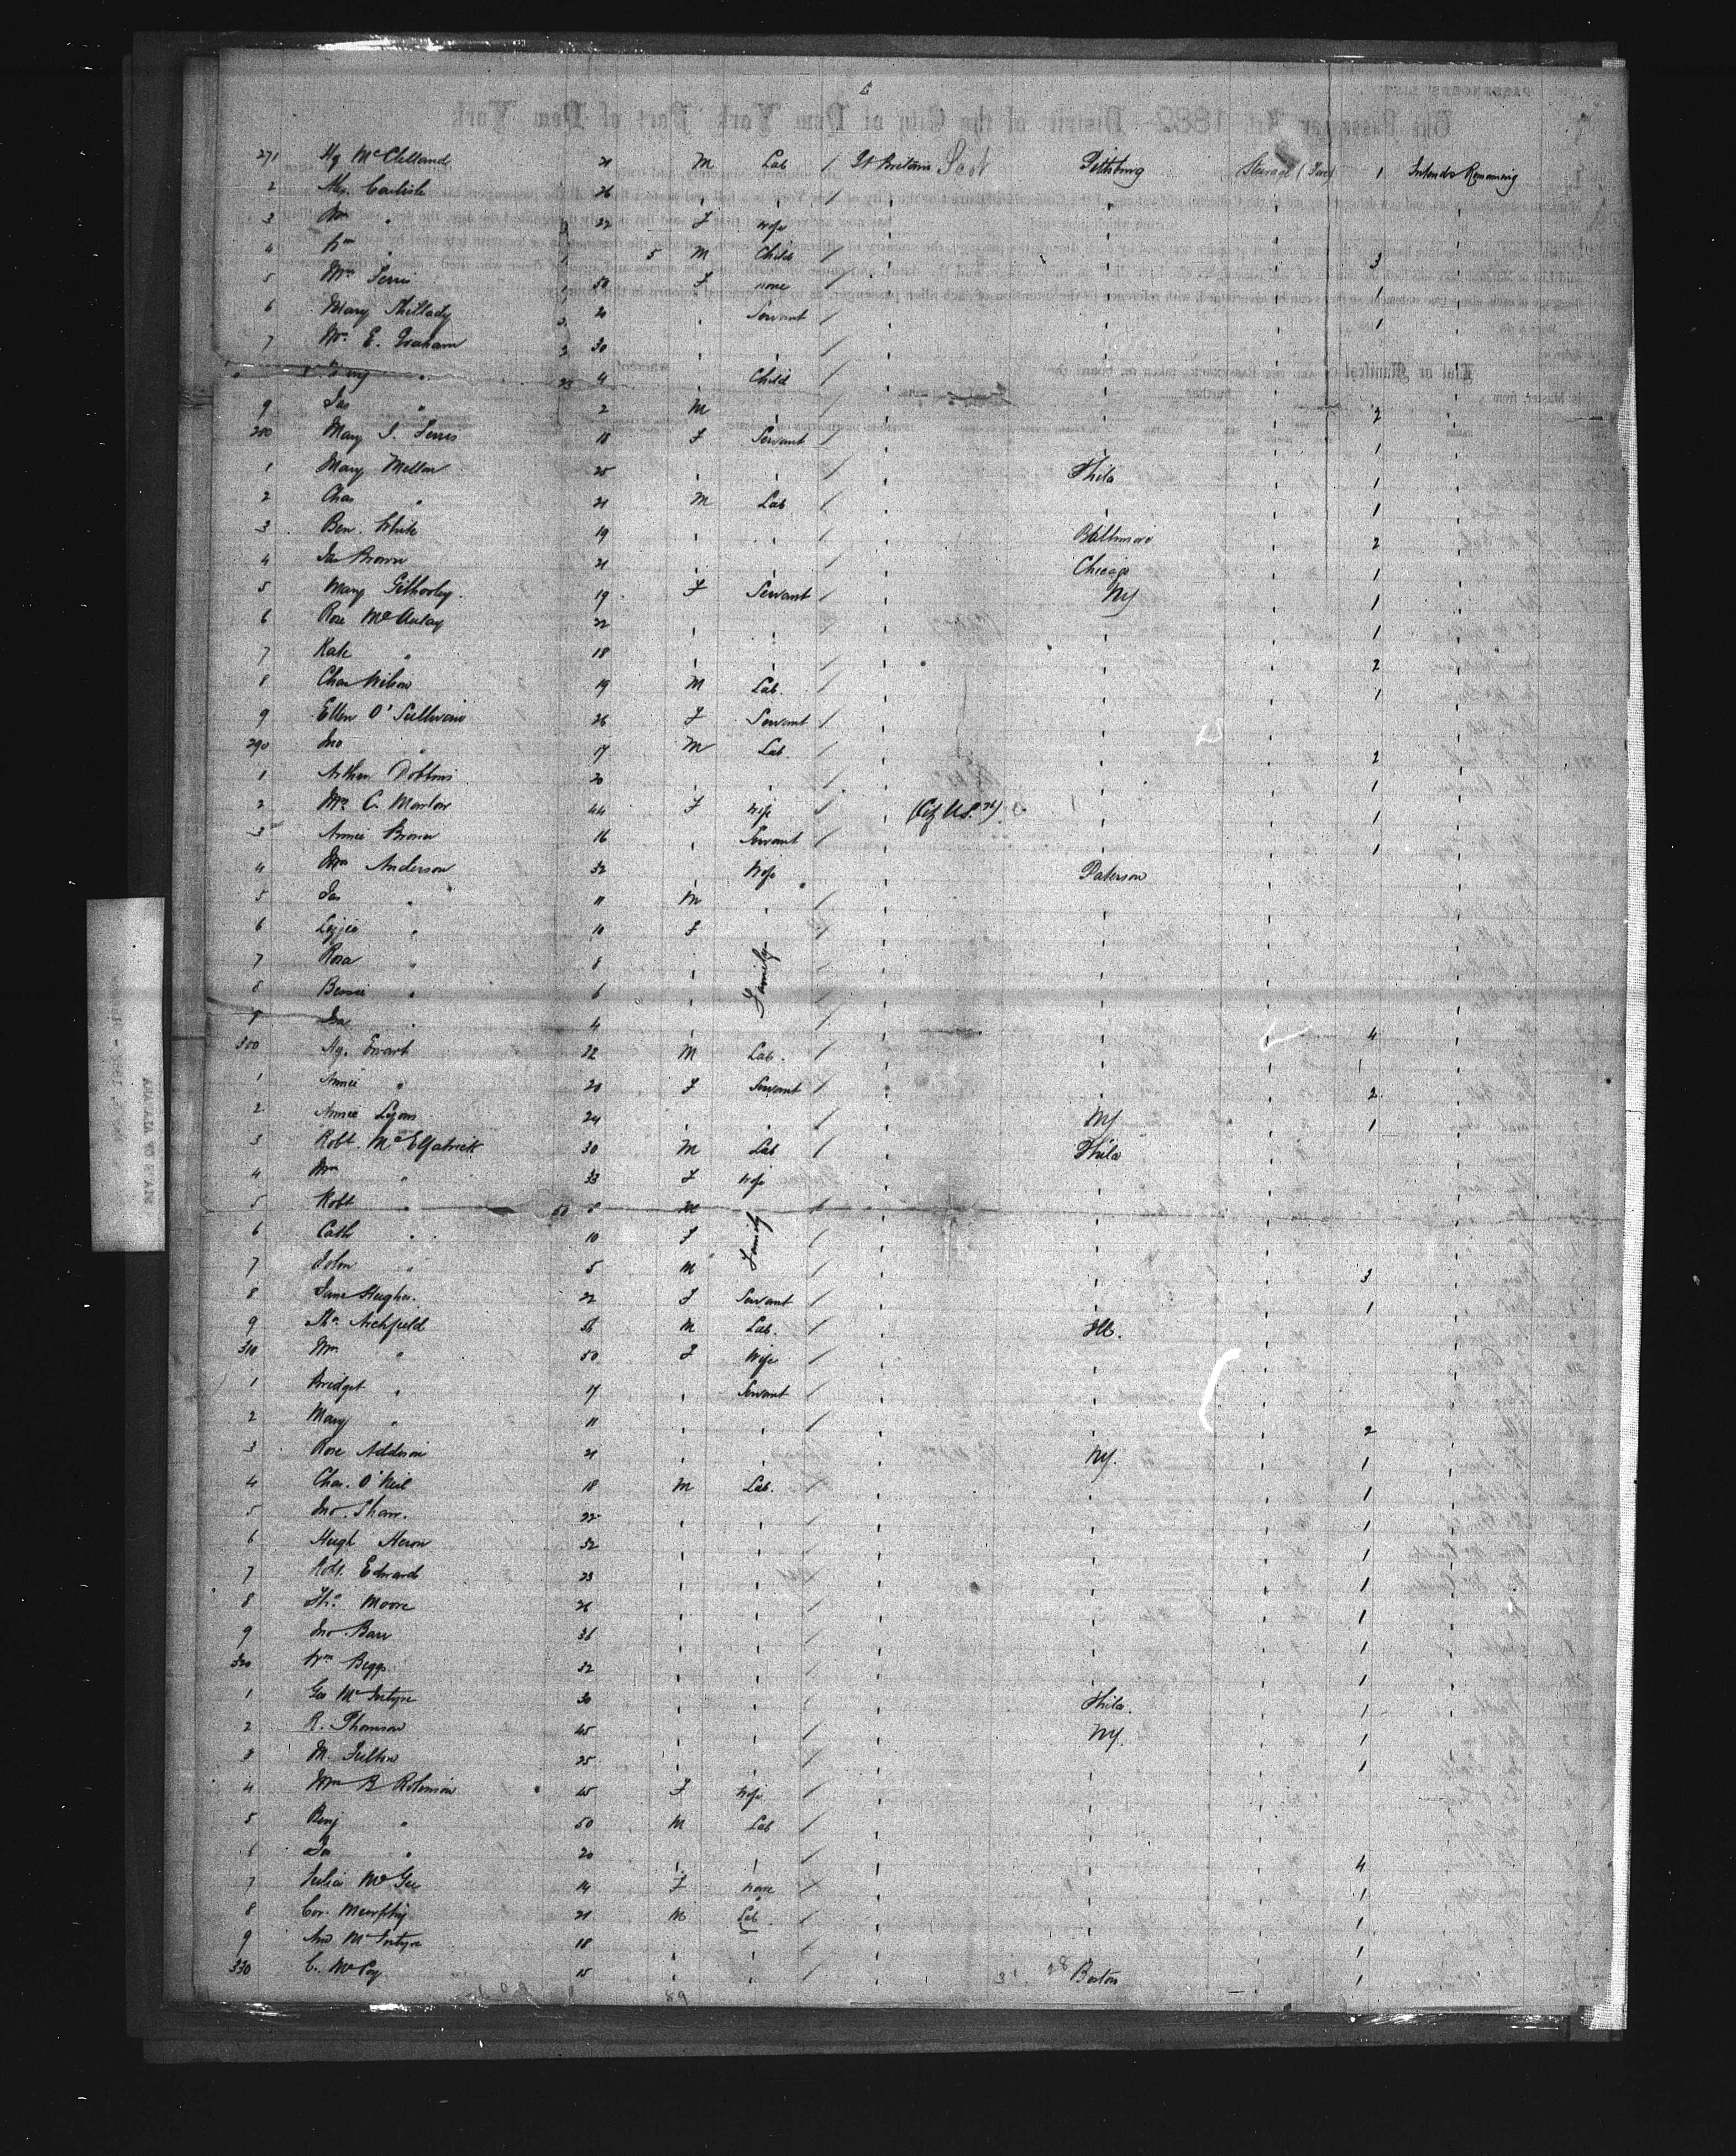 271 Hg McClelland 21 M Lab / Gt Britain Scot Pittsburg Steerage (Fore) 1 Intends Remaining
2 Alex. Carlisle 26 " " /
3 Mrs " 22 F wife
4 Wm " 5 M Child / 3
5 Mrs Ferris 50 F none / 1
6 Mary Shillady 20 " Servant / 1
7 Mrs E. Graham 30 " " /
" 4 " Child /
9 Jas " 2 M " / 2
280 Mary J. Ferris 18 F Servant / 1
1 Mary Mellon 25 " " / Phila 1
2 Chas " 21 M Lab / " 1
3 Ben. White 19 " " / Baltimore 2
4 Jas Brown 21 " " / Chicago 1
5 Mary Gilhooley. 19 F Servant / NY 1
6 Rose McAulay 22 " " / 1
7 Kate " 18 " " / 2
8 Chas Wilson 19 M Lab. / 1
9 Ellen O'Sullivan 26 F Servant /
290 Jno " 17 M Lab / 2
1 Arthur Dobbins 20 " " / 1
2 Mrs C. Morlow 44 F wife / (Cit U.S.) 1
3 Annie Brown 16 " Servant / 1
4 Mrs Anderson 32 " Wife Paterson
5 Jas " 11 M " /
6 Lizzie " 10 F /
7 Rosa " 8 " Family /
8 Bennie " 6 " /
9 " 4 " / 4
300 Hg. Ewart 22 M Lab. / 1
1 Annie " 20 F Servant / 2
2 Annie Lyons 24 " " / NY 1
3 Robt. McElfatrick 30 M Lab / Phila
4 Mrs " 33 F Wife
5 Robt " 8 M /
6 Cath " 10 F Family /
7 John " 5 M / 3
8 Jane Hughes. 22 F Servant / 1
9 Tho. Archfield 56 M Lab. / Ill.
310 Mrs " 50 F Wife /
1 Bridget " 17 " Servant /
2 Mary " 11 " " / 2
3 Rose Addison 21 " " / NY. 1
4 Chas. O'Neil 18 M Lab. / 1
5 Jno. Shaw. 22 " " / 1
6 Hugh Heron 32 " " / 1
7 Robt. Edward 23 " " / 1
8 Tho. Moore 26 " " / 1
9 Jno. Barr 36 " " / 1
320 Wm Beggs 32 " " / 1
1 Geo McIntyre 30 " " / Phila. 1
2 R. Thomson 45 " " / NY. 1
3 M. Fulton 25 " " / 1
4 Mrs B Robinson 45 F Wife /
5 Benj " 50 M Lab /
6 Jas " 20 " " / 4
7 Julia McGee 14 F none / 1
8 Cor. Murphy 21 M Lab / 1
9 And McIntyre 18 " " / 1
330 C. McCoy 15 " " / Boston 1